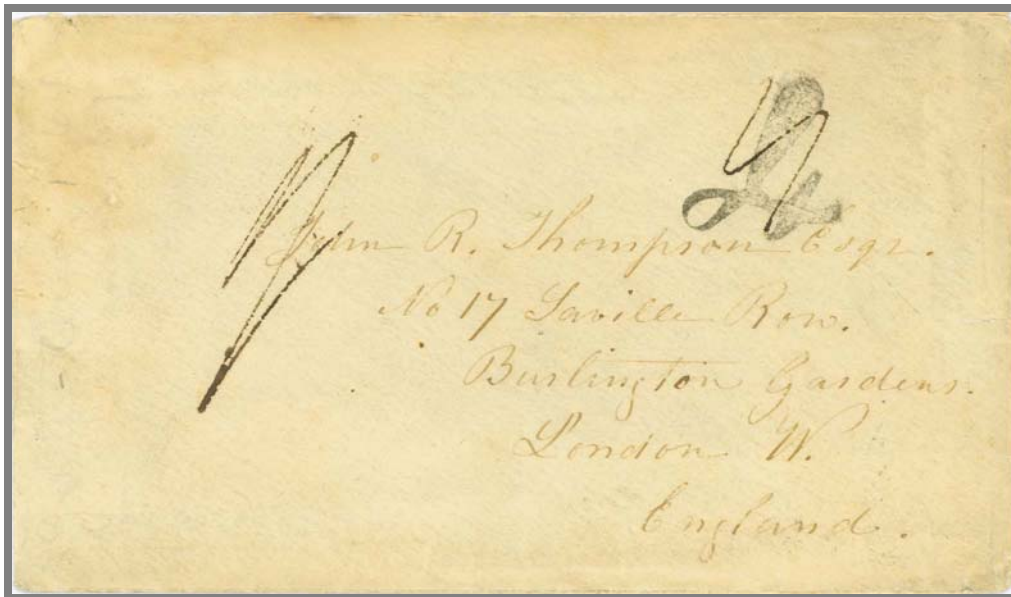 John R. Thompson Esqr.
No 17 Saville Row.
Burlington Gardens.
London W.
England.